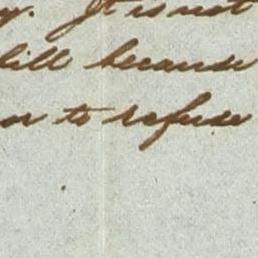 y. It is not
bill because
or to refuse